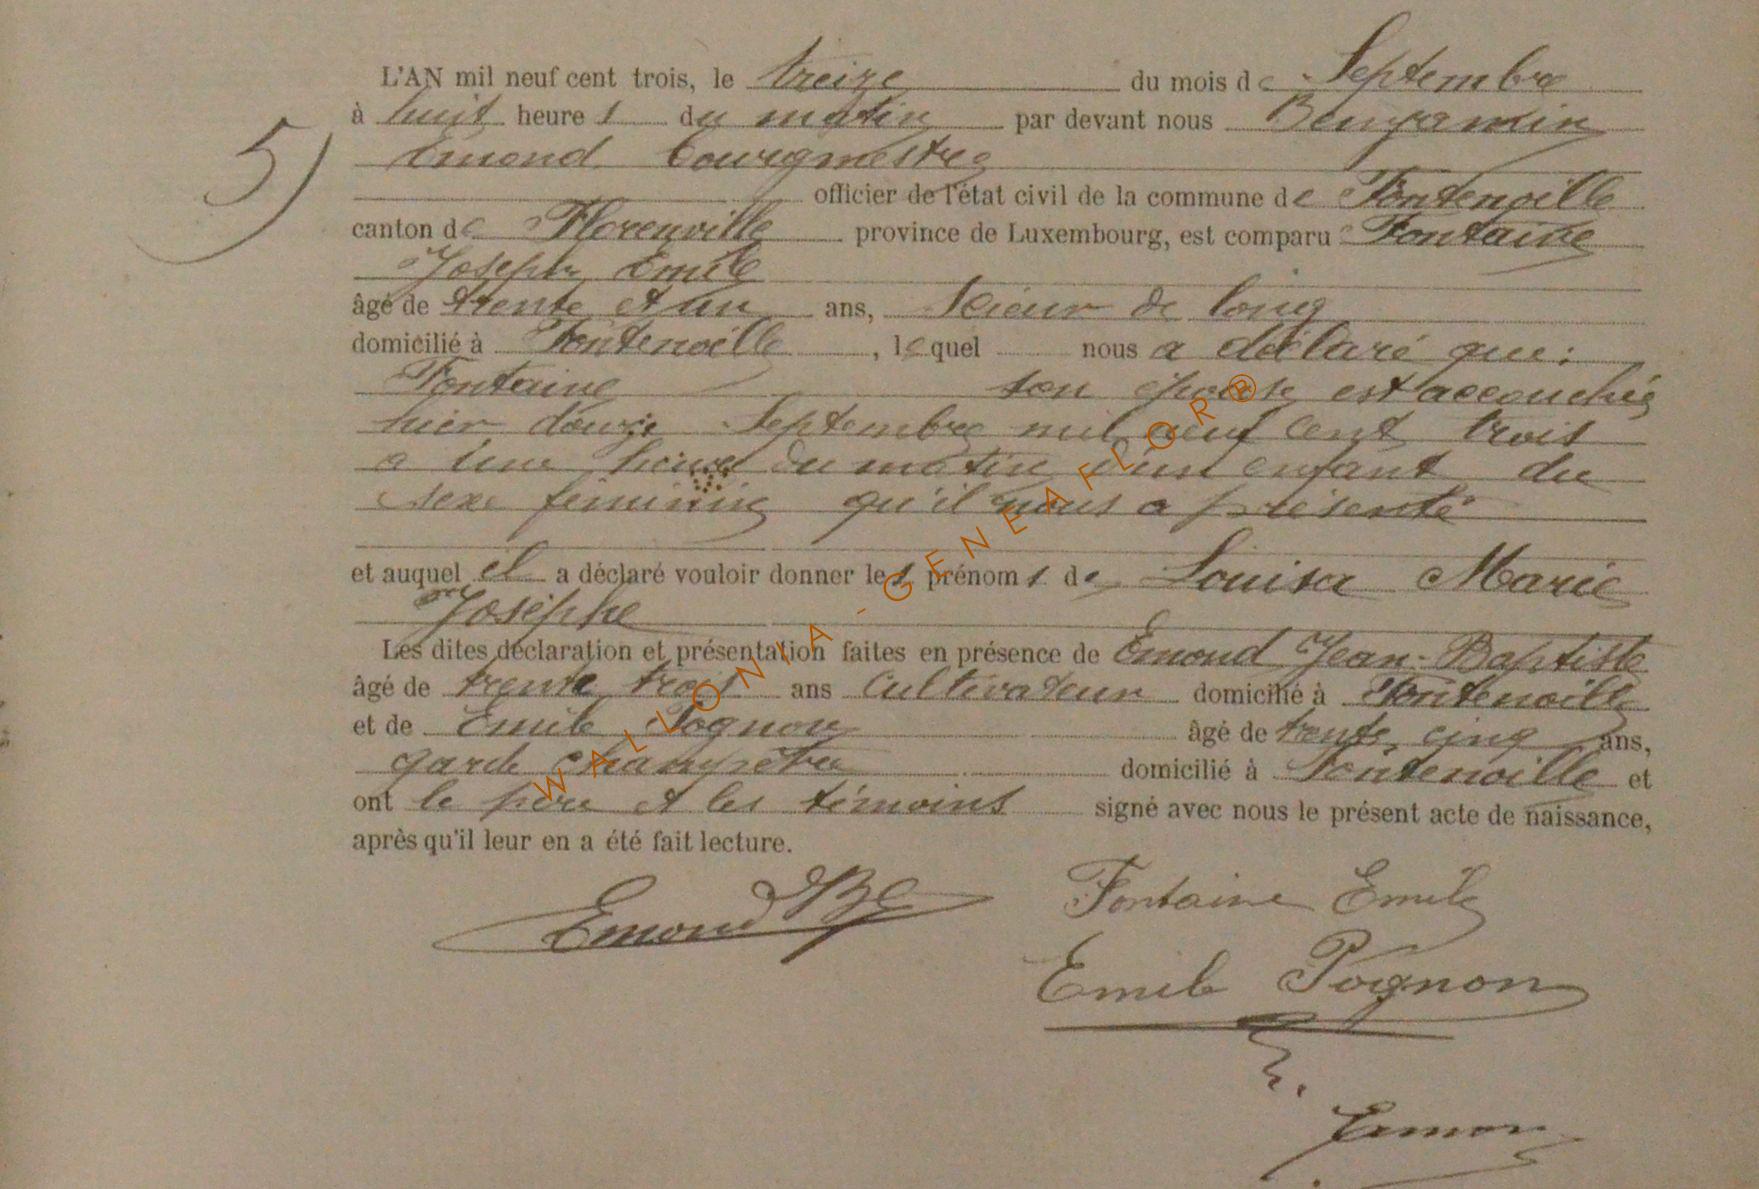 L'AN mil neuf cent trois, le treize du mois de Septembre
à huit heures du matin par devant nous Benjamin
Emond bourgmestre
5)
officier de l'état civil de la commune de Fontenoille
canton de Florenville province de Luxembourg, est comparu Fontaine
Joseph Emile
âgé de trente et un ans, Scieur de long
domicilié à Fontenoille, lequel nous a déclaré que:
Fontaine son épouse est accouchée
hier douze Septembre mil neuf cent trois
a une heure du matin d'un enfant du
sexe féminin qu'il nous a présenté
et auquel il a déclaré vouloir donner les prénoms de Louisa Marie
Josèphe
Les dites déclaration et présentation faites en présence de Emond Jean-Baptiste
âgé de trente trois ans Cultivateur domicilié à Fontenoille
et de Emile Pognon âgé de trente cinq ans,
garde champêtre domicilié à Fontenoille et
ont le père et les témoins signé avec nous le présent acte de naissance,
après qu'il leur en a été fait lecture.
Emond JB Fontaine Emile
Emile Pognon
Emon
WALLONIA - GENEAFLOR®